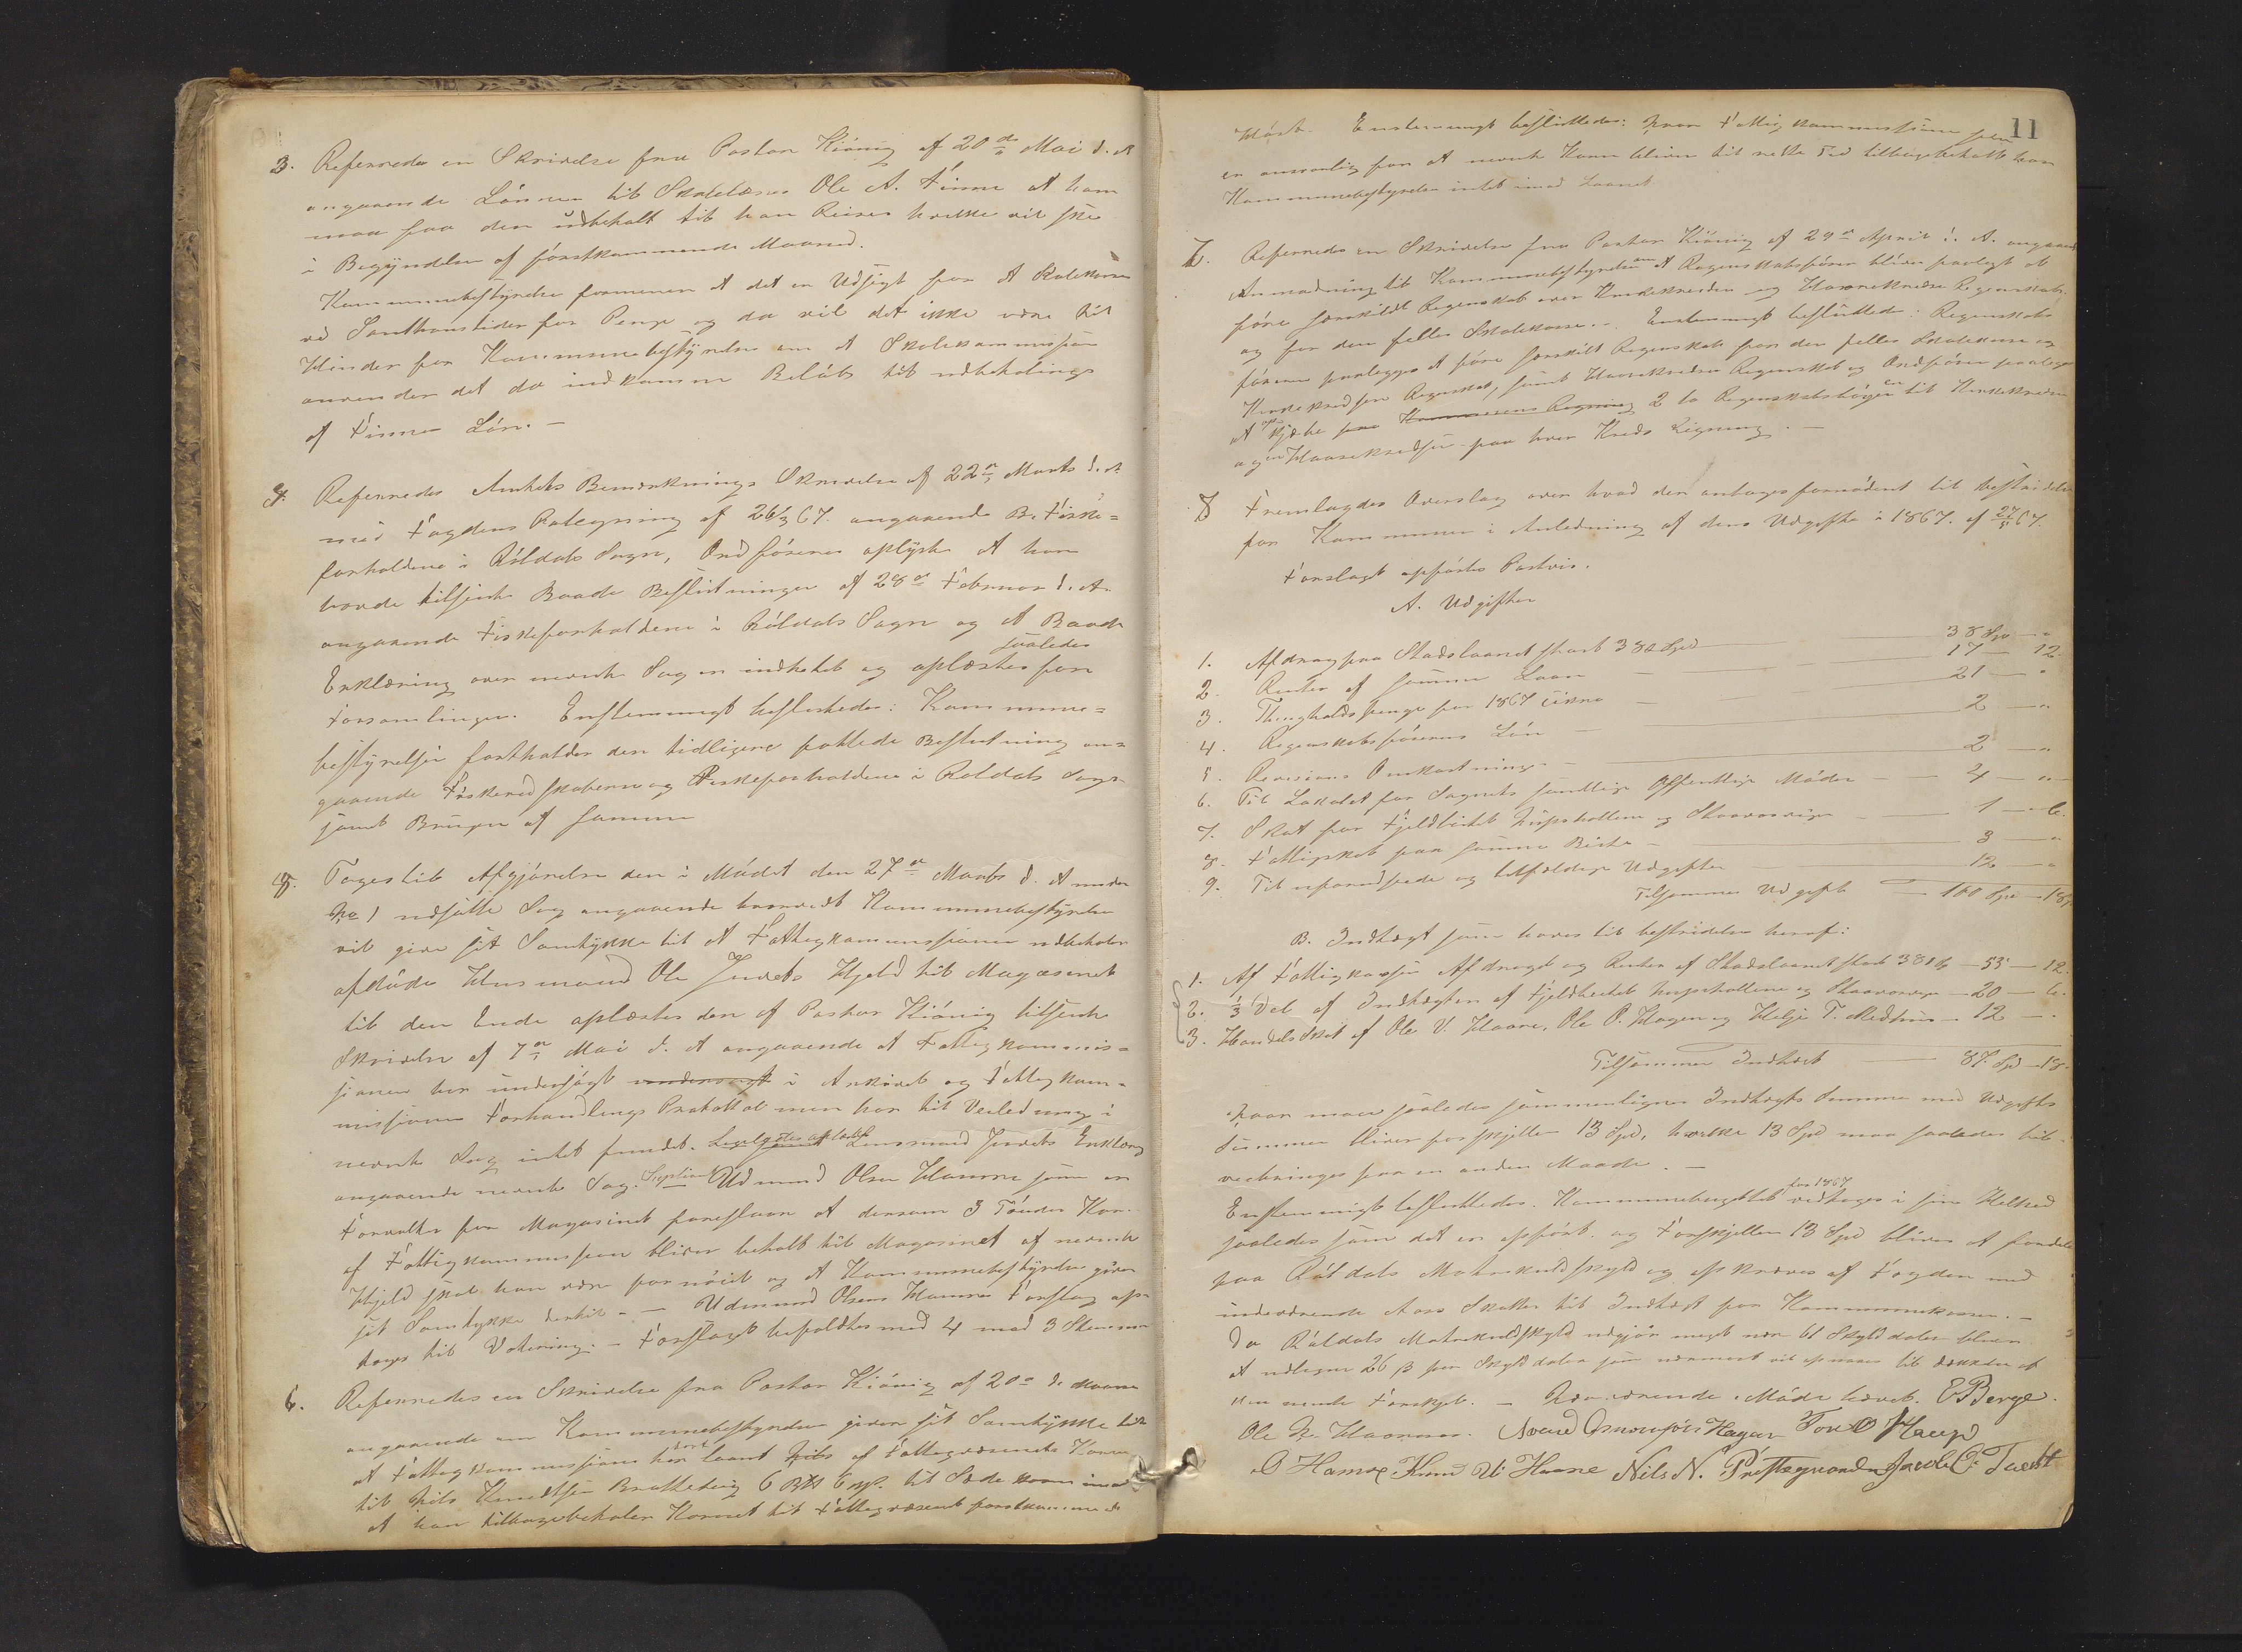 3. Refereredes en Skrivelse fra Pastor Kiønig af 20de Mai d. A
angaaende Lønnen til Skolelærer Ole A. Finne at ham
maa faa den udbetalt til han Reiser hvilke vil ske
i Begyndelsen af førstkommende Maaned.
Kommunebestyrelsen formener at det er Udsigt for at Skolekassen
ved Santhanstider faar Penge og da vil det ikke være til
Hinder for Kommunebestyrelsen om at Skolekommissjonen
anvender det da indkomne Beløb til udbetaling
af Finnes Løn. —
4. Refereredes Amtets Bemærknings Skrivelse af 22de Marts d. A
med Fogdens Paategning af 26/3 67. angaaende B. Fiske=
forholdene i Røldals Sogn, Ordføreren oplyste at han
havde tilsendt Baade Beslutninger af 28de Februar d. A.
angaaende Fiskeforholdene i Røldals Sogn og at Baade
saaledes
Erklæring over nævnte Sag er indhentet og oplæstes for
Forsamlingen. Enstemmigt besluttedes: Kommune=
bestyrelsen fastholder den tidligere fattede Beslutning an=
gaaende Fiskeredskaberne og Fiskeforholdene i Røldals Sogn
samt Brugen af samme
5. Toges til Afgjørelse den i Mødet den 27de Marts d. A under
No 1 udsatte Sag angaaende hvorvidt Kommunebestyrelsen
vil give sit Samtykke til at Fattigkommissionen udbetaler
afdøde Husmand Ole Juvets Gjeld til Magasinet
til den Ende oplæstes den af Pastor Kiønig tilsendte
Skrivelse af 7de Mai d. A angaaende at Fattigkommis=
sionen har undersøgt i Arkivet og Fattigkom=
missionens Forhandlings Protokol men har til Veiledning i
nævnte Sag intet fundet. Lensmand Juvets Erklæring
angaaende nævnte Sag. Udmund Olsen Hamre som er
Forvalter for Magasinet foreslaar at dersom 3 Tønder Korn
af Fattigkommissjonen bliver betalt til Magasinet af nævnte
Gjeld skal han være fornøiet og at Kommunebestyrelsen giver
sit Samtykke dertil. — Udmund Olsens Hamres Forslag op=
toges til Votering. — Forslaget bifaldtes med 4 mod 3 Stemmer
6. Refereredes en Skrivelse fra Pastor Kiønig af 20de d. Maaned
angaaende om Kommunebestyrelsen giver sit Samtykke til
at Fattigkommissjonen har laant Nils af Fattigvæsenets Korn
til Nils Knudtsen Bratteteig 6 til Sæde korn imod
at han tilbagebetaler Kornet til Fattigvæsenet førstkommende
11
Høst. Enstemmigt besluttedes: Naar Fattigkommissionen selv
er ansvarlig for at nævnte Korn bliver til rette Tid tilbagebetalt har
Kommunebestyrelsen intet imod Laanet
7. Refereredes en Skrivelse fra Pastor Kiønig af 29de April d. A. angaaende
Anmodning til Kommunebestyrelsen om at Regenskabsfører bliver paalagt at
føre særskildt Regenskab over Kirkekredsen og Haarekredsens Regenskab
og for den felles Skolekasse. — Enstemmigt besluttedes: Regenskabs
føreren paalegges at føre særskilt Regenskab for den felles Skolekasse og
Kirkekredsens Regenskab, samt Haarekredsens Regenskab og Ordføren paalegges
at kjøbe for Kommunens Regning 2 to Regenskabsbøger en til Kirkekredsen
og en Haarekredsen paa hver Kreds Regning. —
8 Fremlagdes Overslag over hvad der antages fornødent til bestridelse
for Kommunen i Anledning af dens Udgifter i 1867. af 27/5 67.
Forslaget opførtes Postvis.
A. Udgifter
1. Afdrag paa Stadslaanet stort 380 Spd — 38 Spd — "
2. Renter af samme Laan — 17 — 12.
3. Thingholds penge for 1867 cirka — 21 — "
4. Regenskabsførerens Løn — 2 — "
5. Revisions Omkostninger — 2 — "
6. Til Lokalet for Sognets samtlige Offentlige Møder — 4 — "
7. Skat for Fjeldbeitet og Staavasvigen — 1 — 6.
8. Fattigskat paa samme Beite — 3 — "
9. Til uforudsete og tilfældige Udgifter — 12 — "
Tilsammen Udgift — 100 Spd — 18
B. Indtægt som haves til bestridelse heraf:
1. Af Fattigkassen Afdraget og Renter af Stadslaanet stort 380 — 55 — 12.
2. 1/3 Del af Indtægten af Fjeldbeitet og Staavasvigen — 20 — 6.
3. Handels Skat af Ole V. Haare, Ole O. Hagen og Helje T. — 12 — .
Tilsammen Indtægt — 87. Spd — 18.
Naar man saaledes sammenligner Indtægts Summen med Udgifts
Summen bliver forskjellen 13 Spd, hvilke 13 Spd maa saaledes til=
veiebringes paa en anden Maade. —
Enstemmigt besluttedes. Kommunebudgettet for 1867 vedtages i sin Helhed
saaledes som det er opført. og Forskjellen 13 Spd bliver at fordele
paa Røldals Matrikulskyld og opkræves af Fogden med
indeværende Aars Skatter til Indtægt for Kommunekassen. —
Da Røldals Matrikulskyld udgjør meget nær 61 Skylddaler bliver
at udlegne 26 β per Skylddaler som nærmest vil opnaaes til dækkelse af
nævnte Forskjel. — Nærværende Møde hævet. E Berge.
Ole N. Haamre. Svend Osmundsen Hagen Tore O Hauge
O Hamre Knud V. Haare Nils N. Prestegaarden Jacob C. Juvet